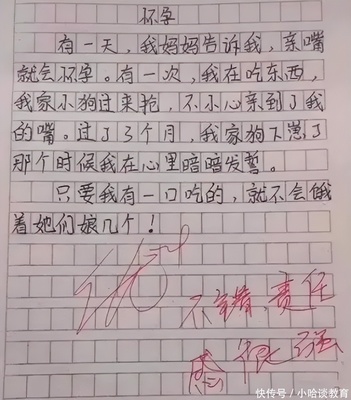 怀孕
有一天，我妈妈告诉我，亲嘴
就会怀孕。有一次，我在吃东西，
我家小狗过来抢，不小心亲到了我
的嘴。过了3个月，我家狗下崽了
那个时候我在心里暗暗发誓。
只要我有一口吃的，就不会俄
着她们娘几个！
不错，责任
感很强
快传号/小哈谈教育